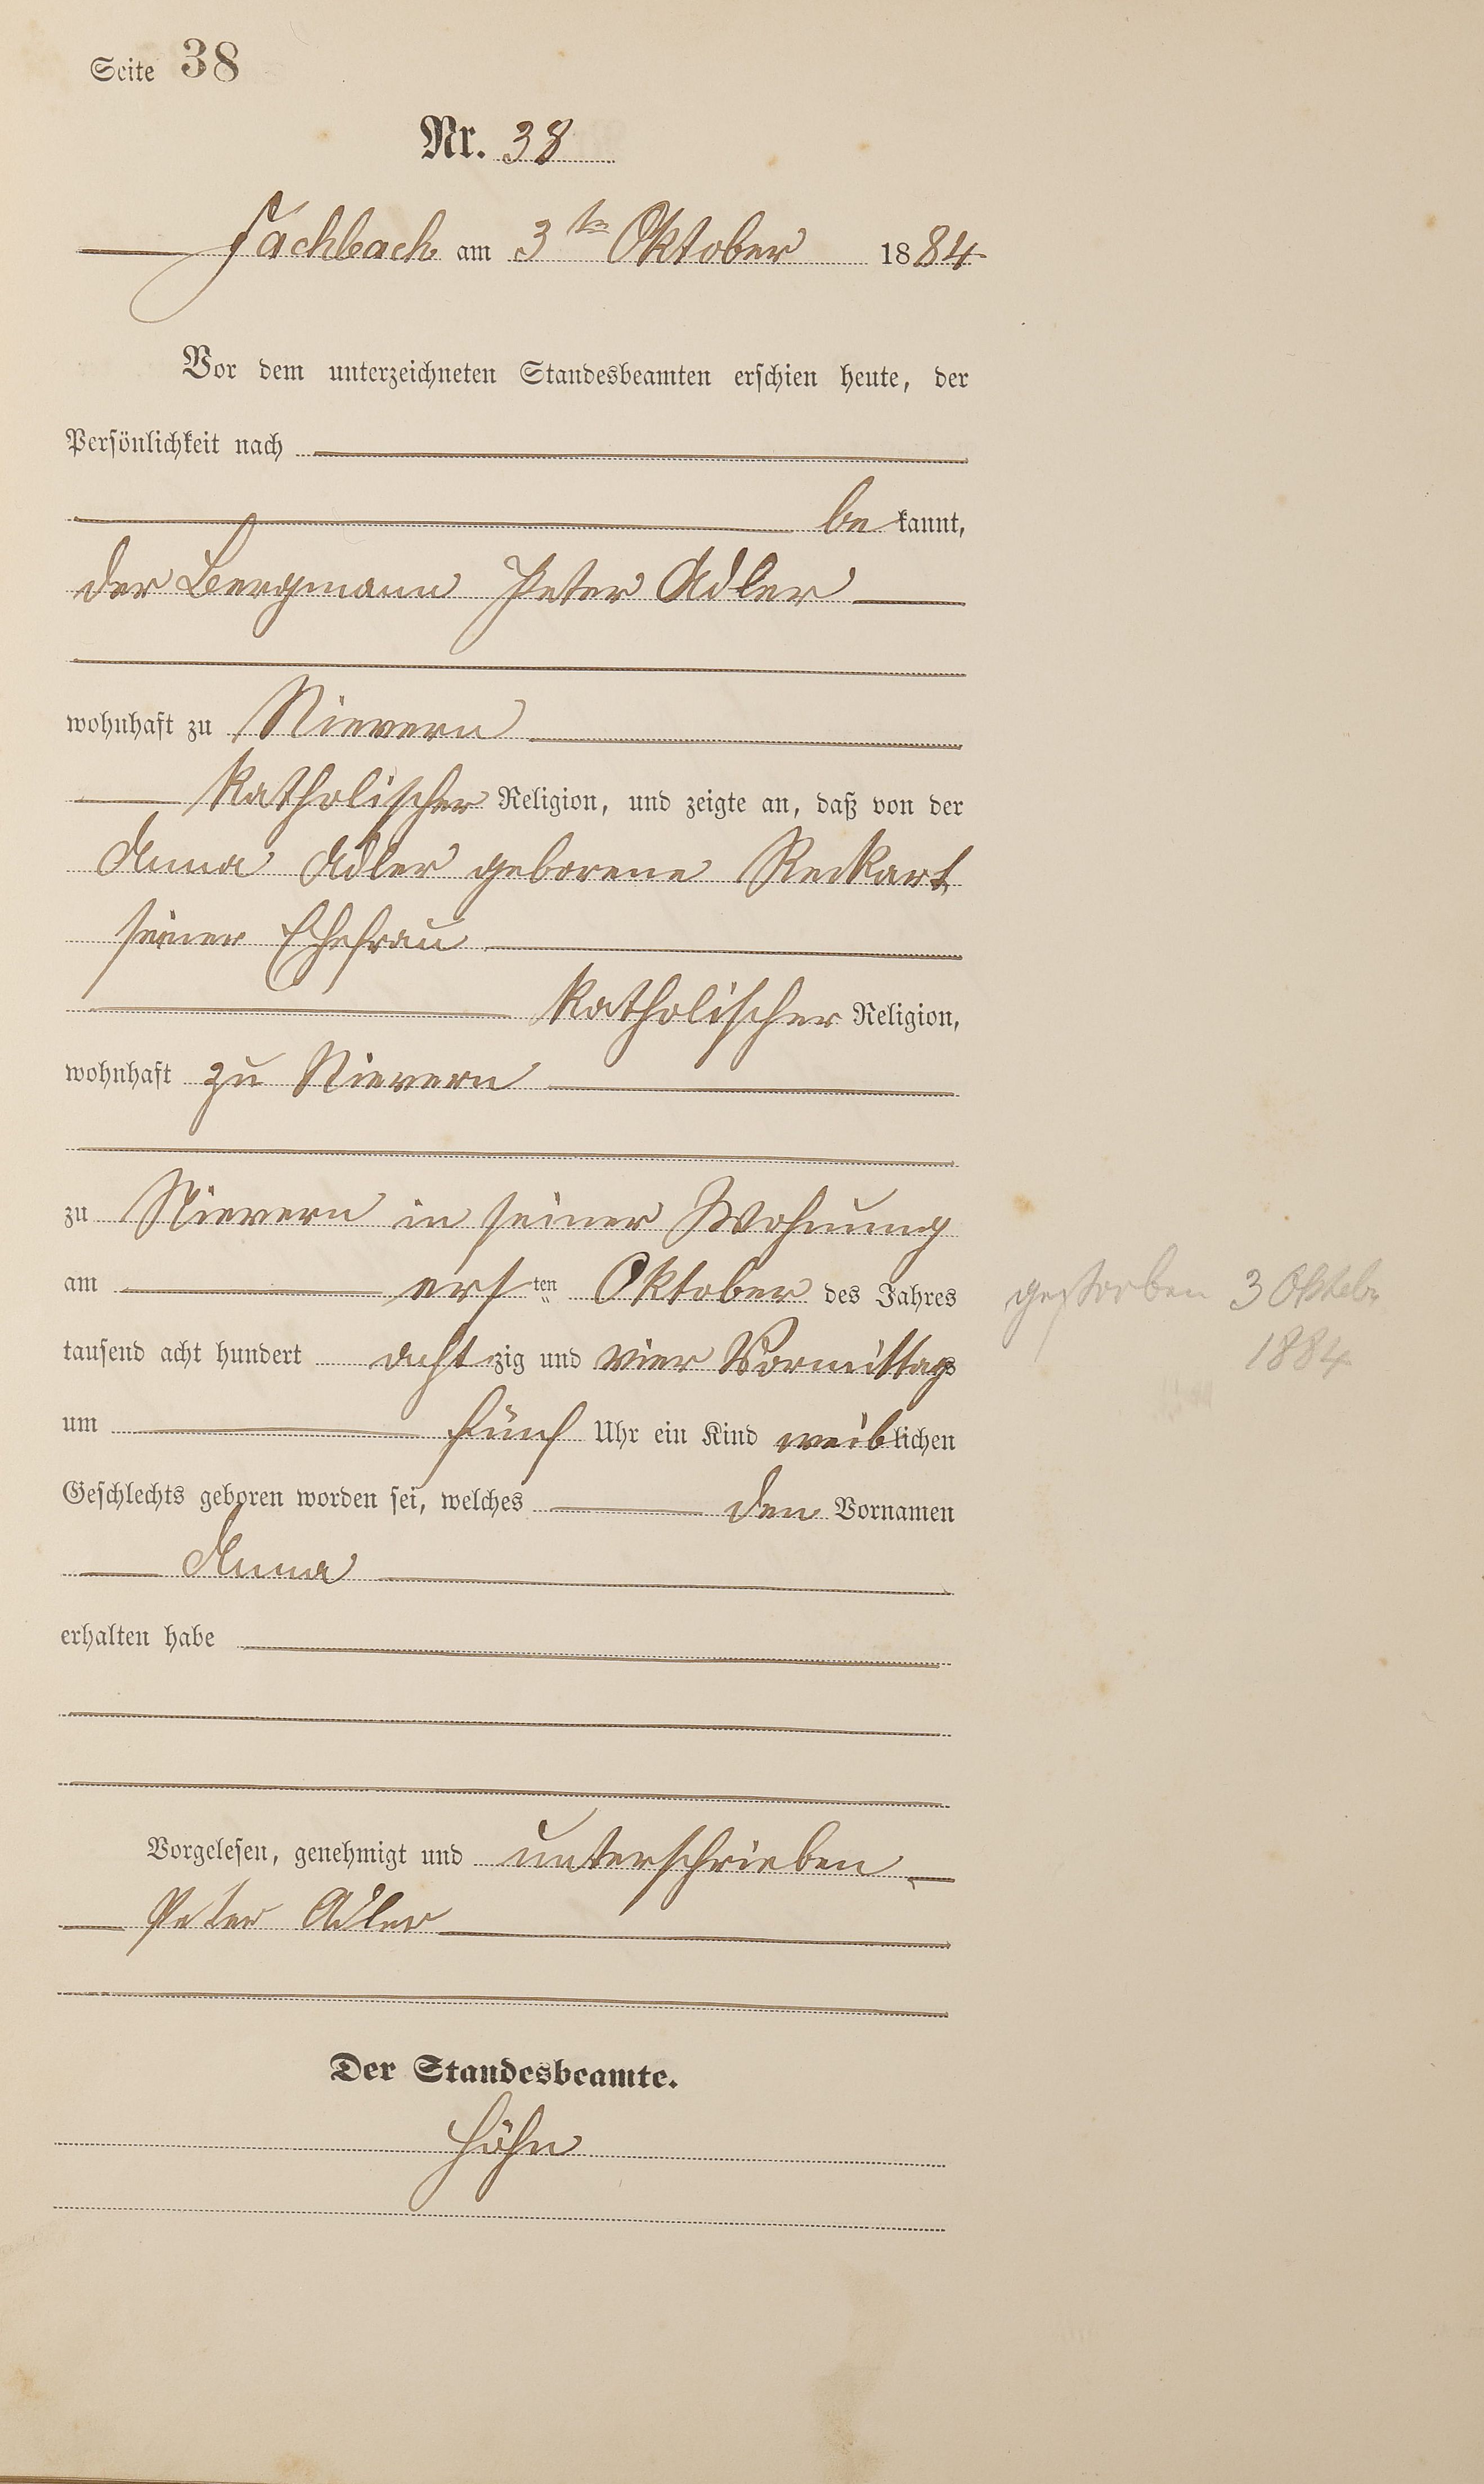 Seite 38
Nr. 38
Fachbach am 3ten Oktober 1884
Vor dem unterzeichneten Standesbeamten erschien heute, der
Persönlichkeit nach
be kannt,
der Bergmann Peter Adler
wohnhaft zu Nievern
katholischer Religion, und zeigte an, daß von der
Anna Adler geborene Reckart
seiner Ehefrau
katholischer Religion,
wohnhaft zu Nievern
zu Nievern in seiner Wohnung
am ersten Oktober des Jahres
tausend acht hundert acht zig und vier Vormittags
um fünf Uhr ein Kind weiblichen
Geschlechts geboren worden sei, welches den Vornamen
Anna
erhalten habe
gestorben 3 Oktobr
1884
Vorgelesen, genehmigt und unterschrieben
Peter Adler
Der Standesbeamte.
Höhn